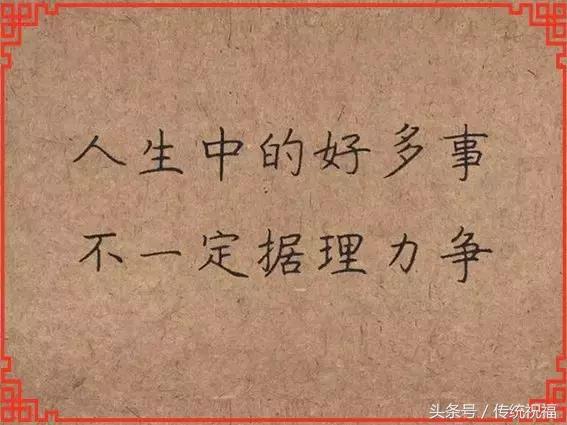 人生中的好多事
不一定据理力争
头条号／传统祝福